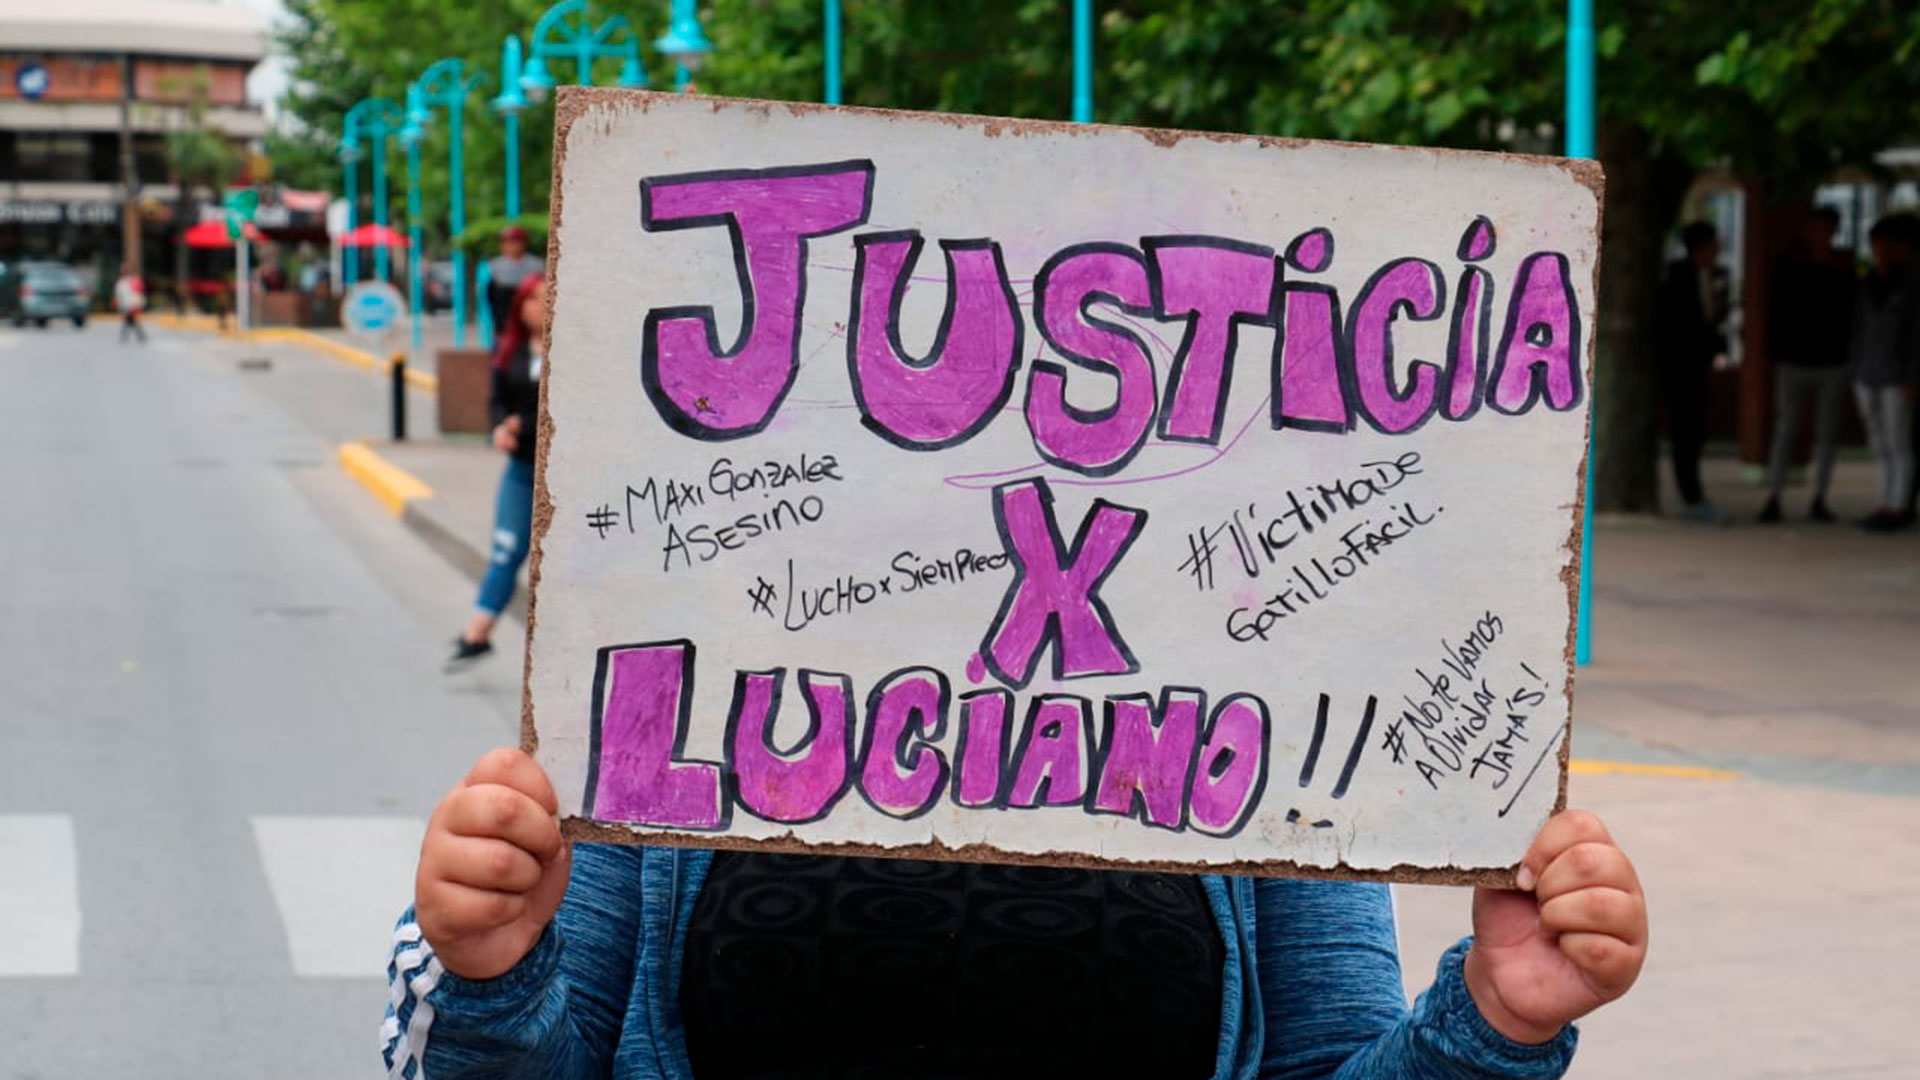 JUSTiCiA
#MAXi GonzALez
ASESiNO
#LUCHOxSiempre
X
#VictiMADE
GatiLLOFACiL.
LUCiANO!!
#No te VAMOS
A Olvidar
JAMÁS!